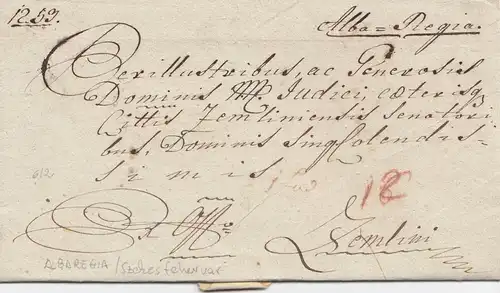 1253.
Alba=Regia.
Perillustribus, ac Generosis
Dominis NN. Judici, cæterisq
Cittis Zemliniensis Senatori
bus, Dominis sing Colendis=
simis
612
18
Ex Offo
Zemlini
ALBAREGIA / Szekesfehervar